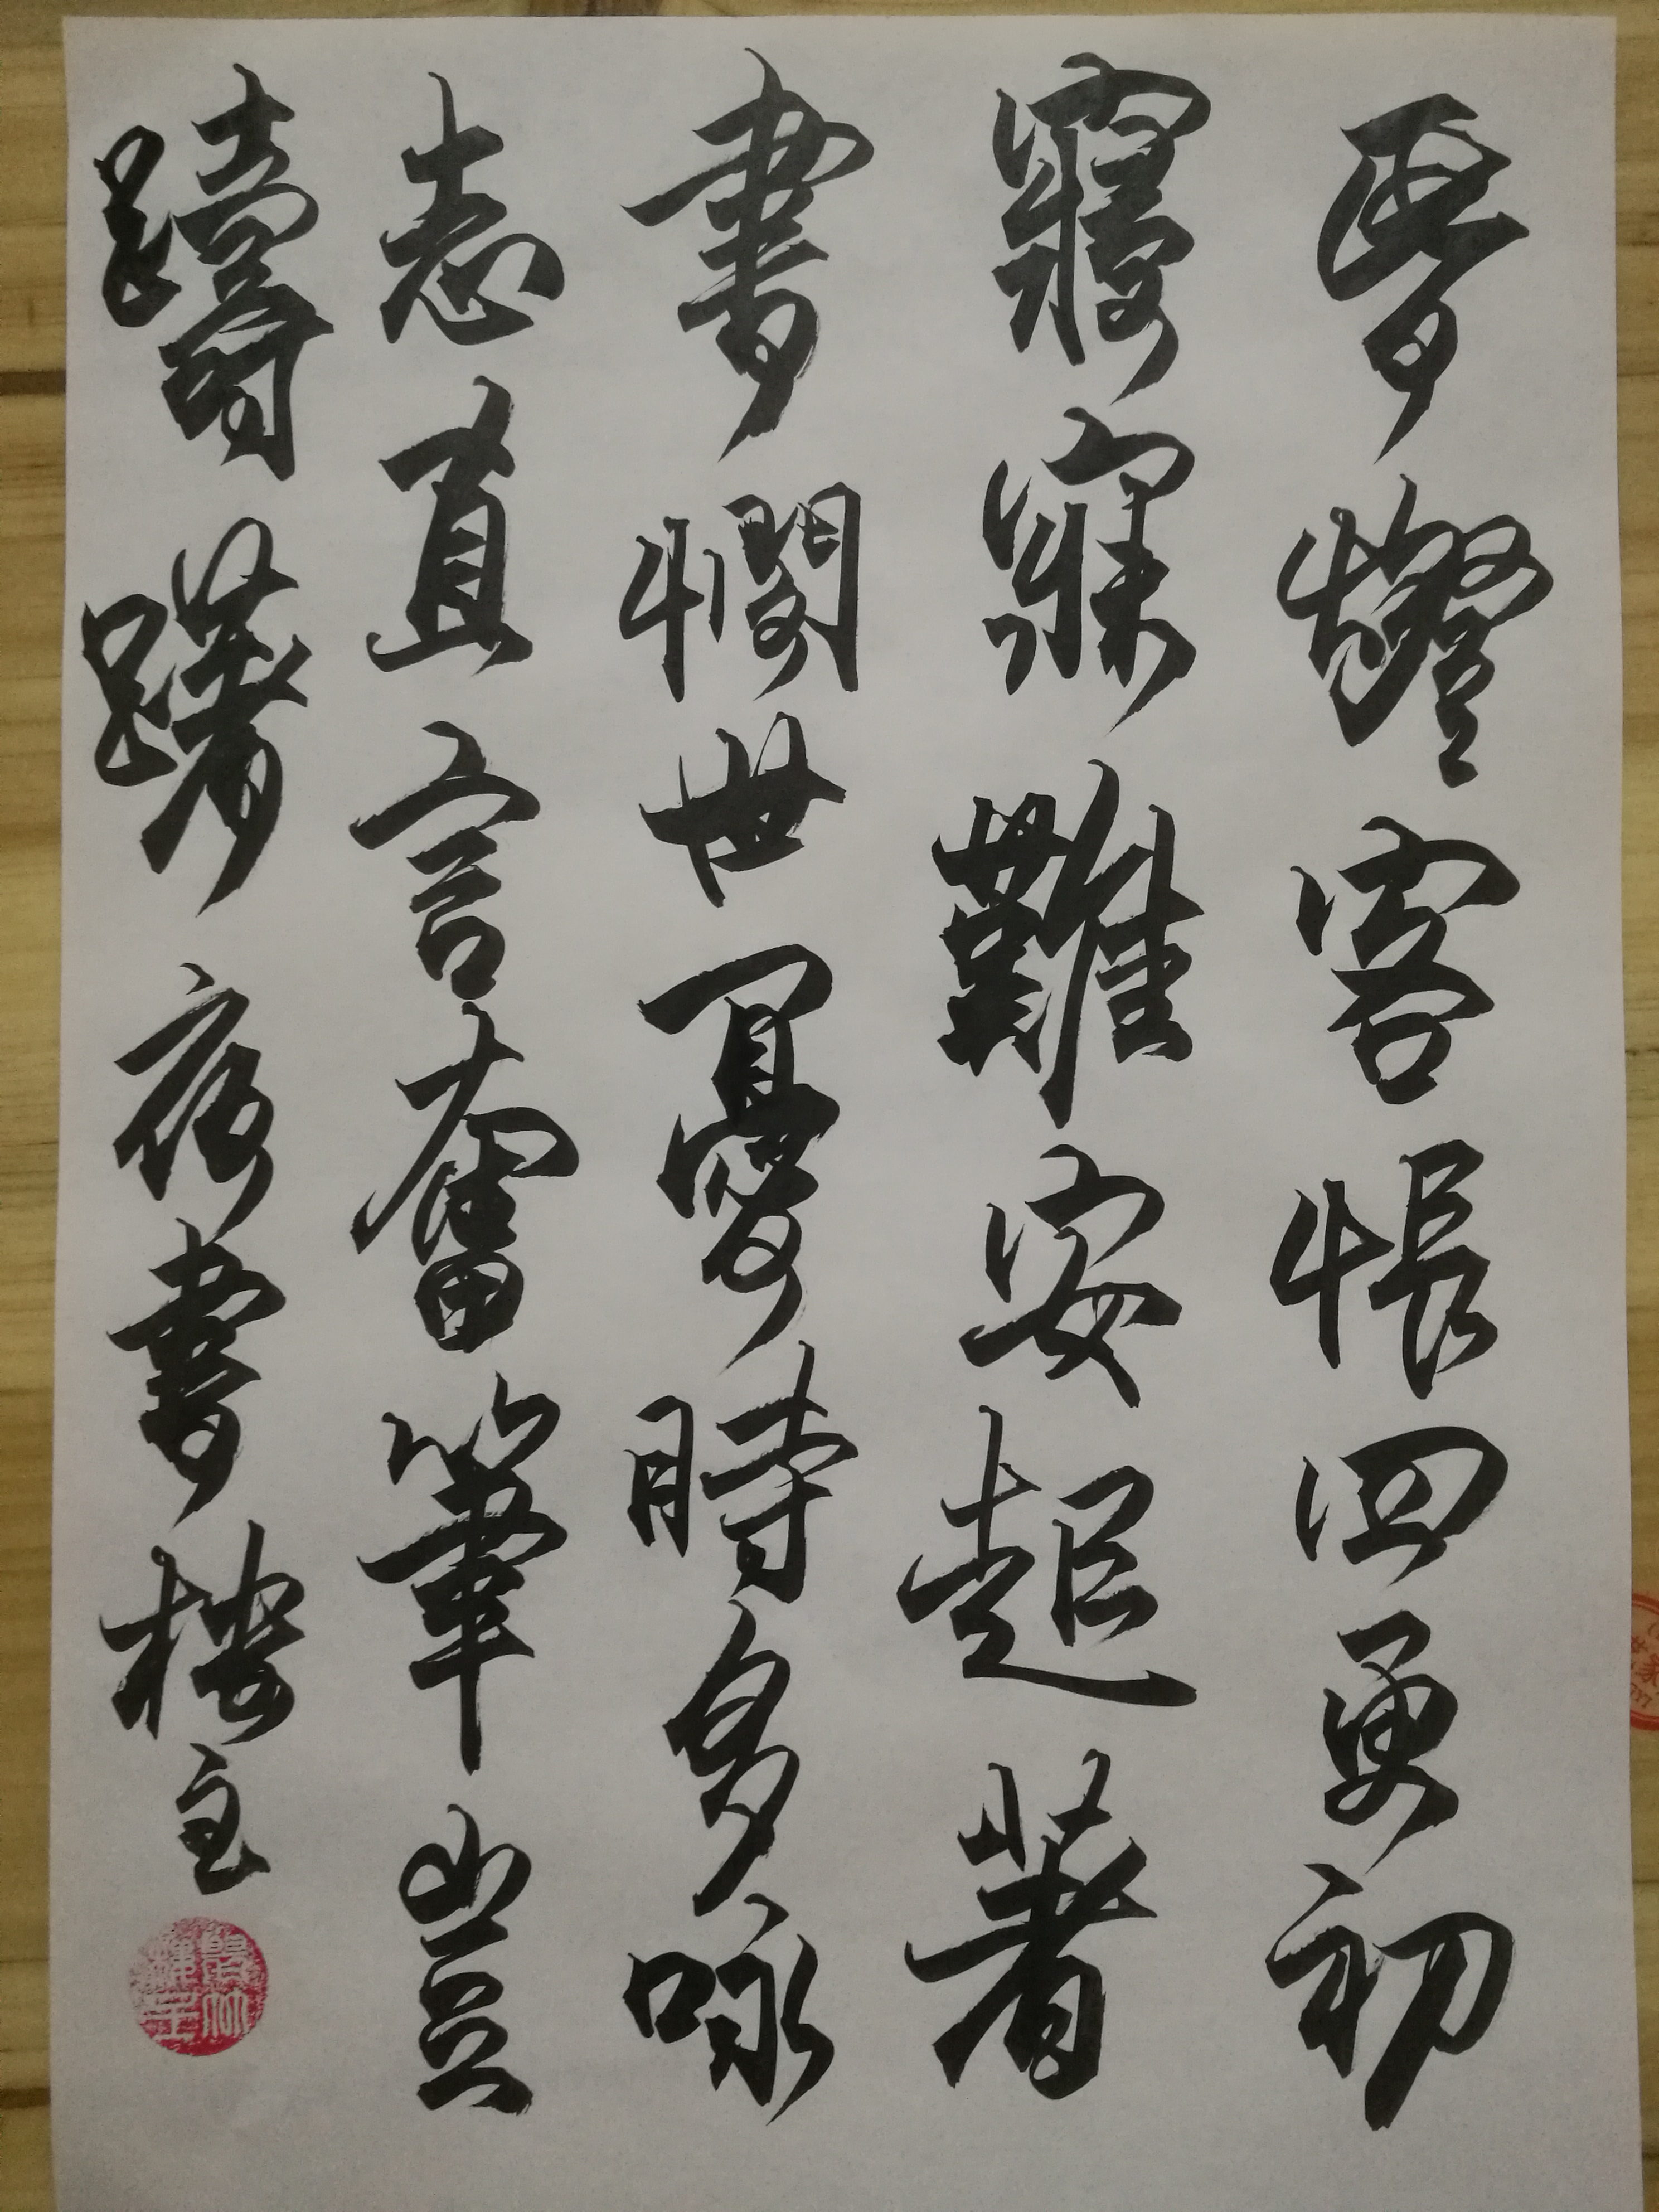 客悵四更初
寤寐難安起著
書憫世憂時多咏
志直言奮筆豈
躊躇夜書樓主